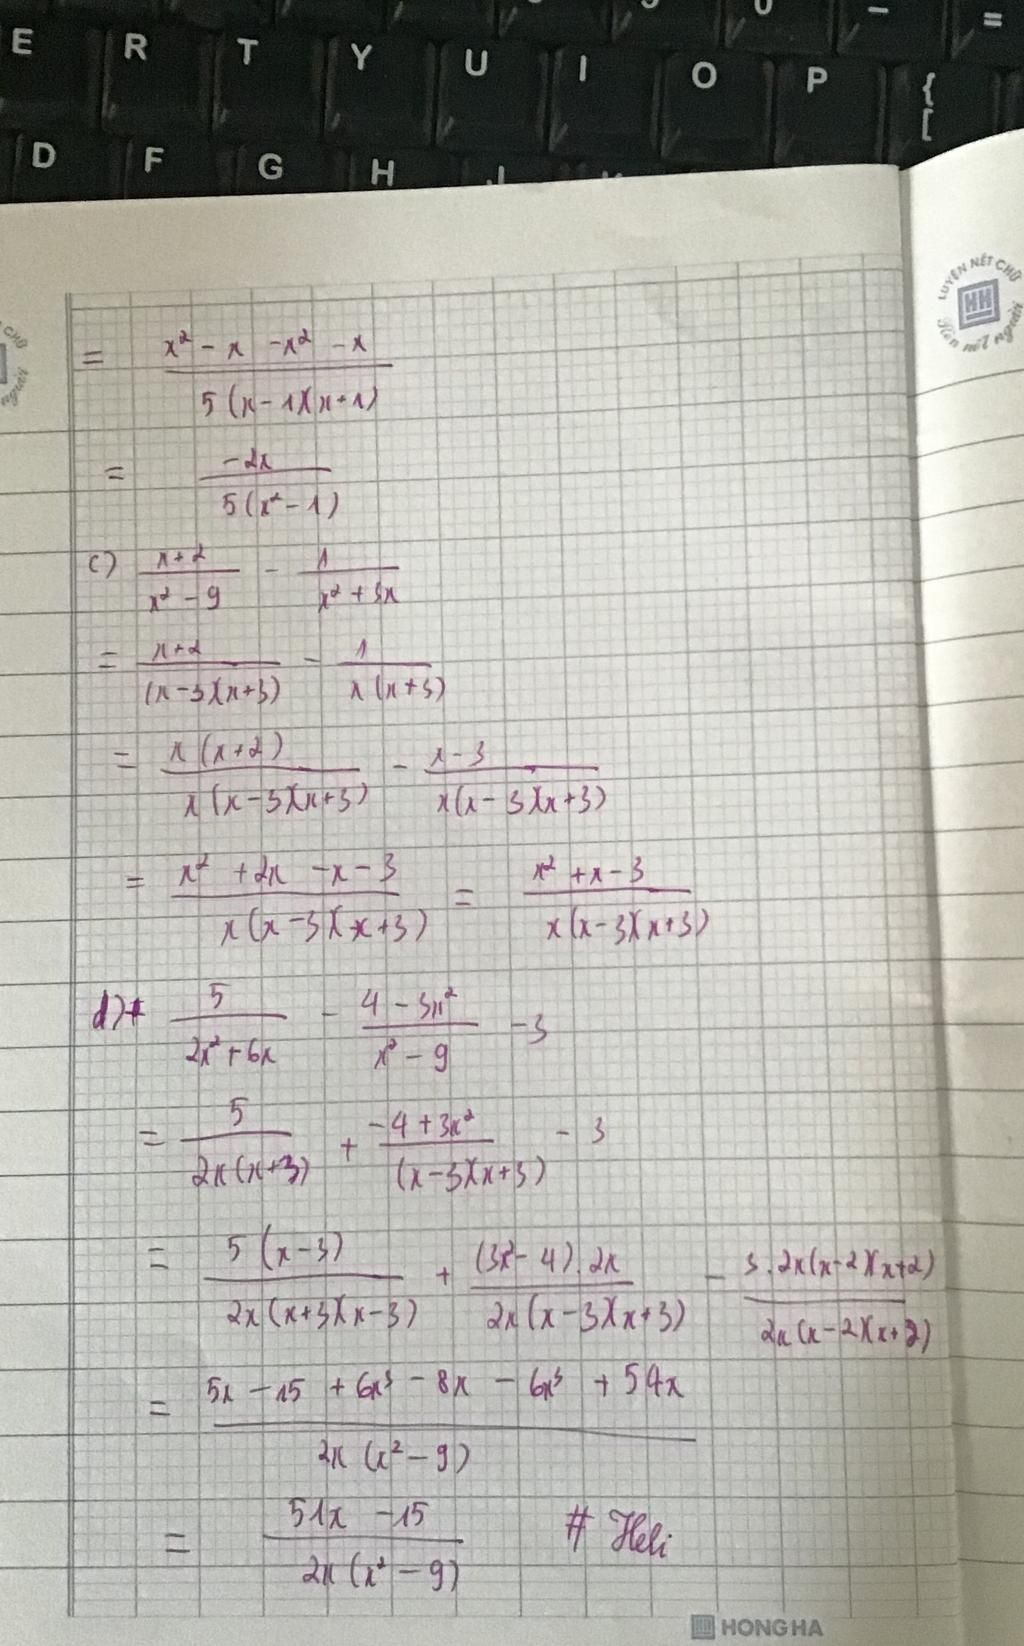 E R T Y U I O P { [
D F G H
LUYỆN NÉT CHỮ
Rèn nết người
= \frac{x² - x - x² - x}{5(x-1)(x+1)}
= \frac{-2x}{5(x²-1)}
c) \frac{x+2}{x²-9} - \frac{1}{x²+3x}
= \frac{x+2}{(x-3)(x+3)} - \frac{1}{x(x+3)}
= \frac{x(x+2)}{x(x-3)(x+3)} - \frac{x-3}{x(x-3)(x+3)}
= \frac{x²+2x-x-3}{x(x-3)(x+3)} = \frac{x²+x-3}{x(x-3)(x+3)}
d) \frac{5}{2x²+6x} - \frac{4-3x²}{x²-9} - 3
= \frac{5}{2x(x+3)} + \frac{-4+3x²}{(x-3)(x+3)} - 3
= \frac{5(x-3)}{2x(x+3)(x-3)} + \frac{(3x²-4).2x}{2x(x-3)(x+3)} - \frac{3.2x(x-2)(x+2)}{2x(x-2)(x+2)}
= \frac{5x-15+6x³-8x-6x³+54x}{2x(x²-9)}
= \frac{51x-15}{2x(x²-9)} # Heli
HONG HA